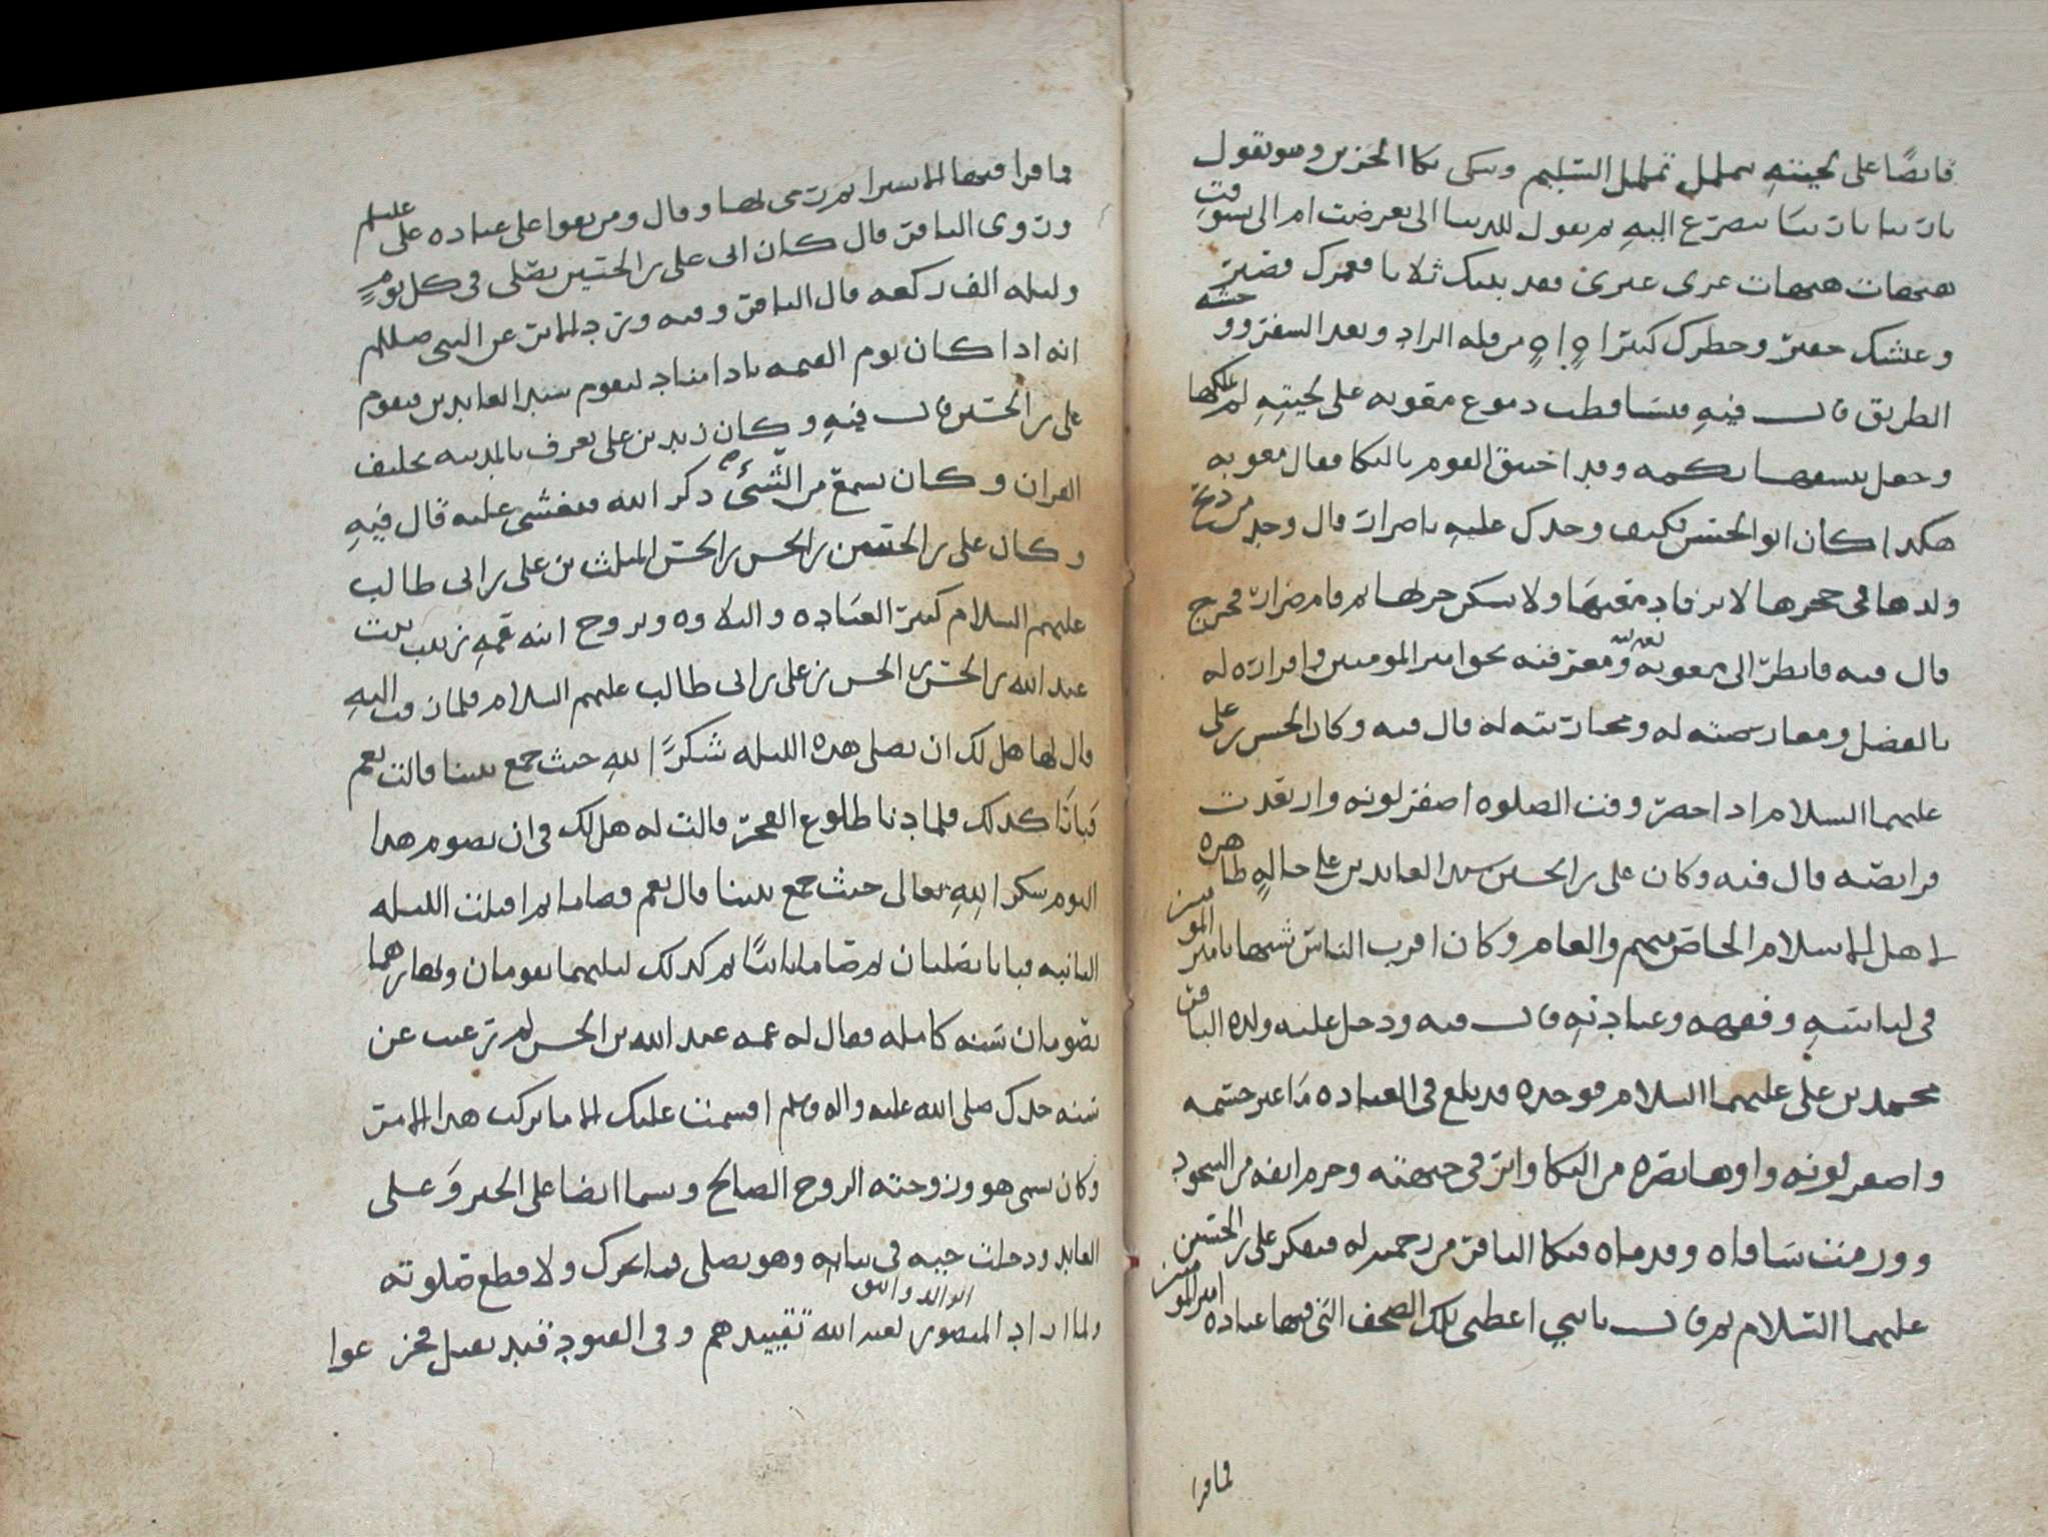 قابضًا على لحيته يتململ تململ السليم ويبكي بكا الحزين وهو يقول
يا ربنا يا ربنا يتضرع اليه ثم يقول للدنيا الي تعرضت ام الي تشوقت
هيهات هيهات غري غيري قد بتتك ثلاثا فعمرك قصير
وعيشك حقير وخطرك كبير اه اه من قله الزاد وبعد السفر ووحشه
الطريق قال فيه فتساقطت دموع معويه على لحيته لم يملكها
وجعل ينشفها بكمه وقد اختنق القوم بالبكا فقال معويه
هكذا كان ابو الحسن فكيف وجدك عليه يا ضرار قال وجد من ذبح
ولدها في حجرها لا ترقا دمعتها ولا يسكن حزنها ثم قام ضرار فخرج
قال فيه فانظر الى معويه ومعرفته بحق امير المومنين واقراره له
بالفضل ومعاو له ومحاربته له قال فيه وكان الحسن بن علي
عليهما السلام اذا حضر وقت الصلوه اصفر لونه وارتعدت
فرايصه قال فيه وكان علي بن الحسين سيد العابدين على حاله ظاهره
لاهل الاسلام الخاص منهم والعام وكان اقرب الناس شبها بامير المومنين
في لباسه وفقهه وعبادته قال فيه ودخل عليه ولده الباقر
محمد بن علي عليهما السلام فوجده قد بلغ في العباده ما غير جسمه
واصفر لونه واوها بصره من البكا واثر في جبهته وخرم انفه من السجود
وورمت ساقاه وقدماه فبكا الباقر من رحمته له ففكر علي بن الحسين
عليهما السلام ثم قال يا بني اعطني تلك الصحف التي فيها عباده امير المومنين
فما قرا
فما قرا فيها الا يسيرا ثم رمى بها وقال ومن يقوا على عباده علي عليلم
وروى الباقر قال كان ابي علي بن الحسين يصلي في كل يوم
وليله الف ركعه قال الباقر وفيه ورد الاثر عن النبي صللم
انه اذا كان يوم القيمه نادا مناد ليقوم سيد العابدين فيقوم
علي بن الحسين قال فيه وكان زيد بن علي يعرف بالمدينه بحليف
القران وكان يسمع من الشئ ذكر الله فيغشى عليه قال فيه
وكان علي بن الحسن بن الحسن بن الحسن المثلث بن علي بن ابي طالب
عليهم السلام كثير العباده والتلاوه وتزوج ابنه عمه زينب بنت
عبد الله بن الحسن بن الحسن بن علي بن ابي طالب عليهم السلام فلما زفت اليه
قال لها هل لك ان نصلي هذه الليله شكرًا لله حيث جمع بيننا قالت نعم
فباتا كذلك فلما دنا طلوع الفجر قالت له هل لك في ان نصوم هذا
اليوم شكرا لله تعالى حيث جمع بيننا قال نعم فصاما ثم اقبلت الليله
الثانيه فباتا يصليان ثم صاما ثالثًا ثم كذلك ليليهما يقومان ونهارهما
يصومان سنه كامله فقال له عمه عبد الله بن الحسن لم ترغب عن
سنه جدك صلى الله عليه واله وسلم اقسمت عليك الا ما تركت هذا الامر
وكان يسمى هو وزوجته الزوج الصالح وسما ايضا على الخير وعلي
العابد ودخلت حيه في ثيابه وهو يصلي فما تحرك ولا قطع صلوته
ولما اراد المنصور ابو الدوانيق لعبد الله تقييدهم وفي القيود قيد ثقيل فجزعوا